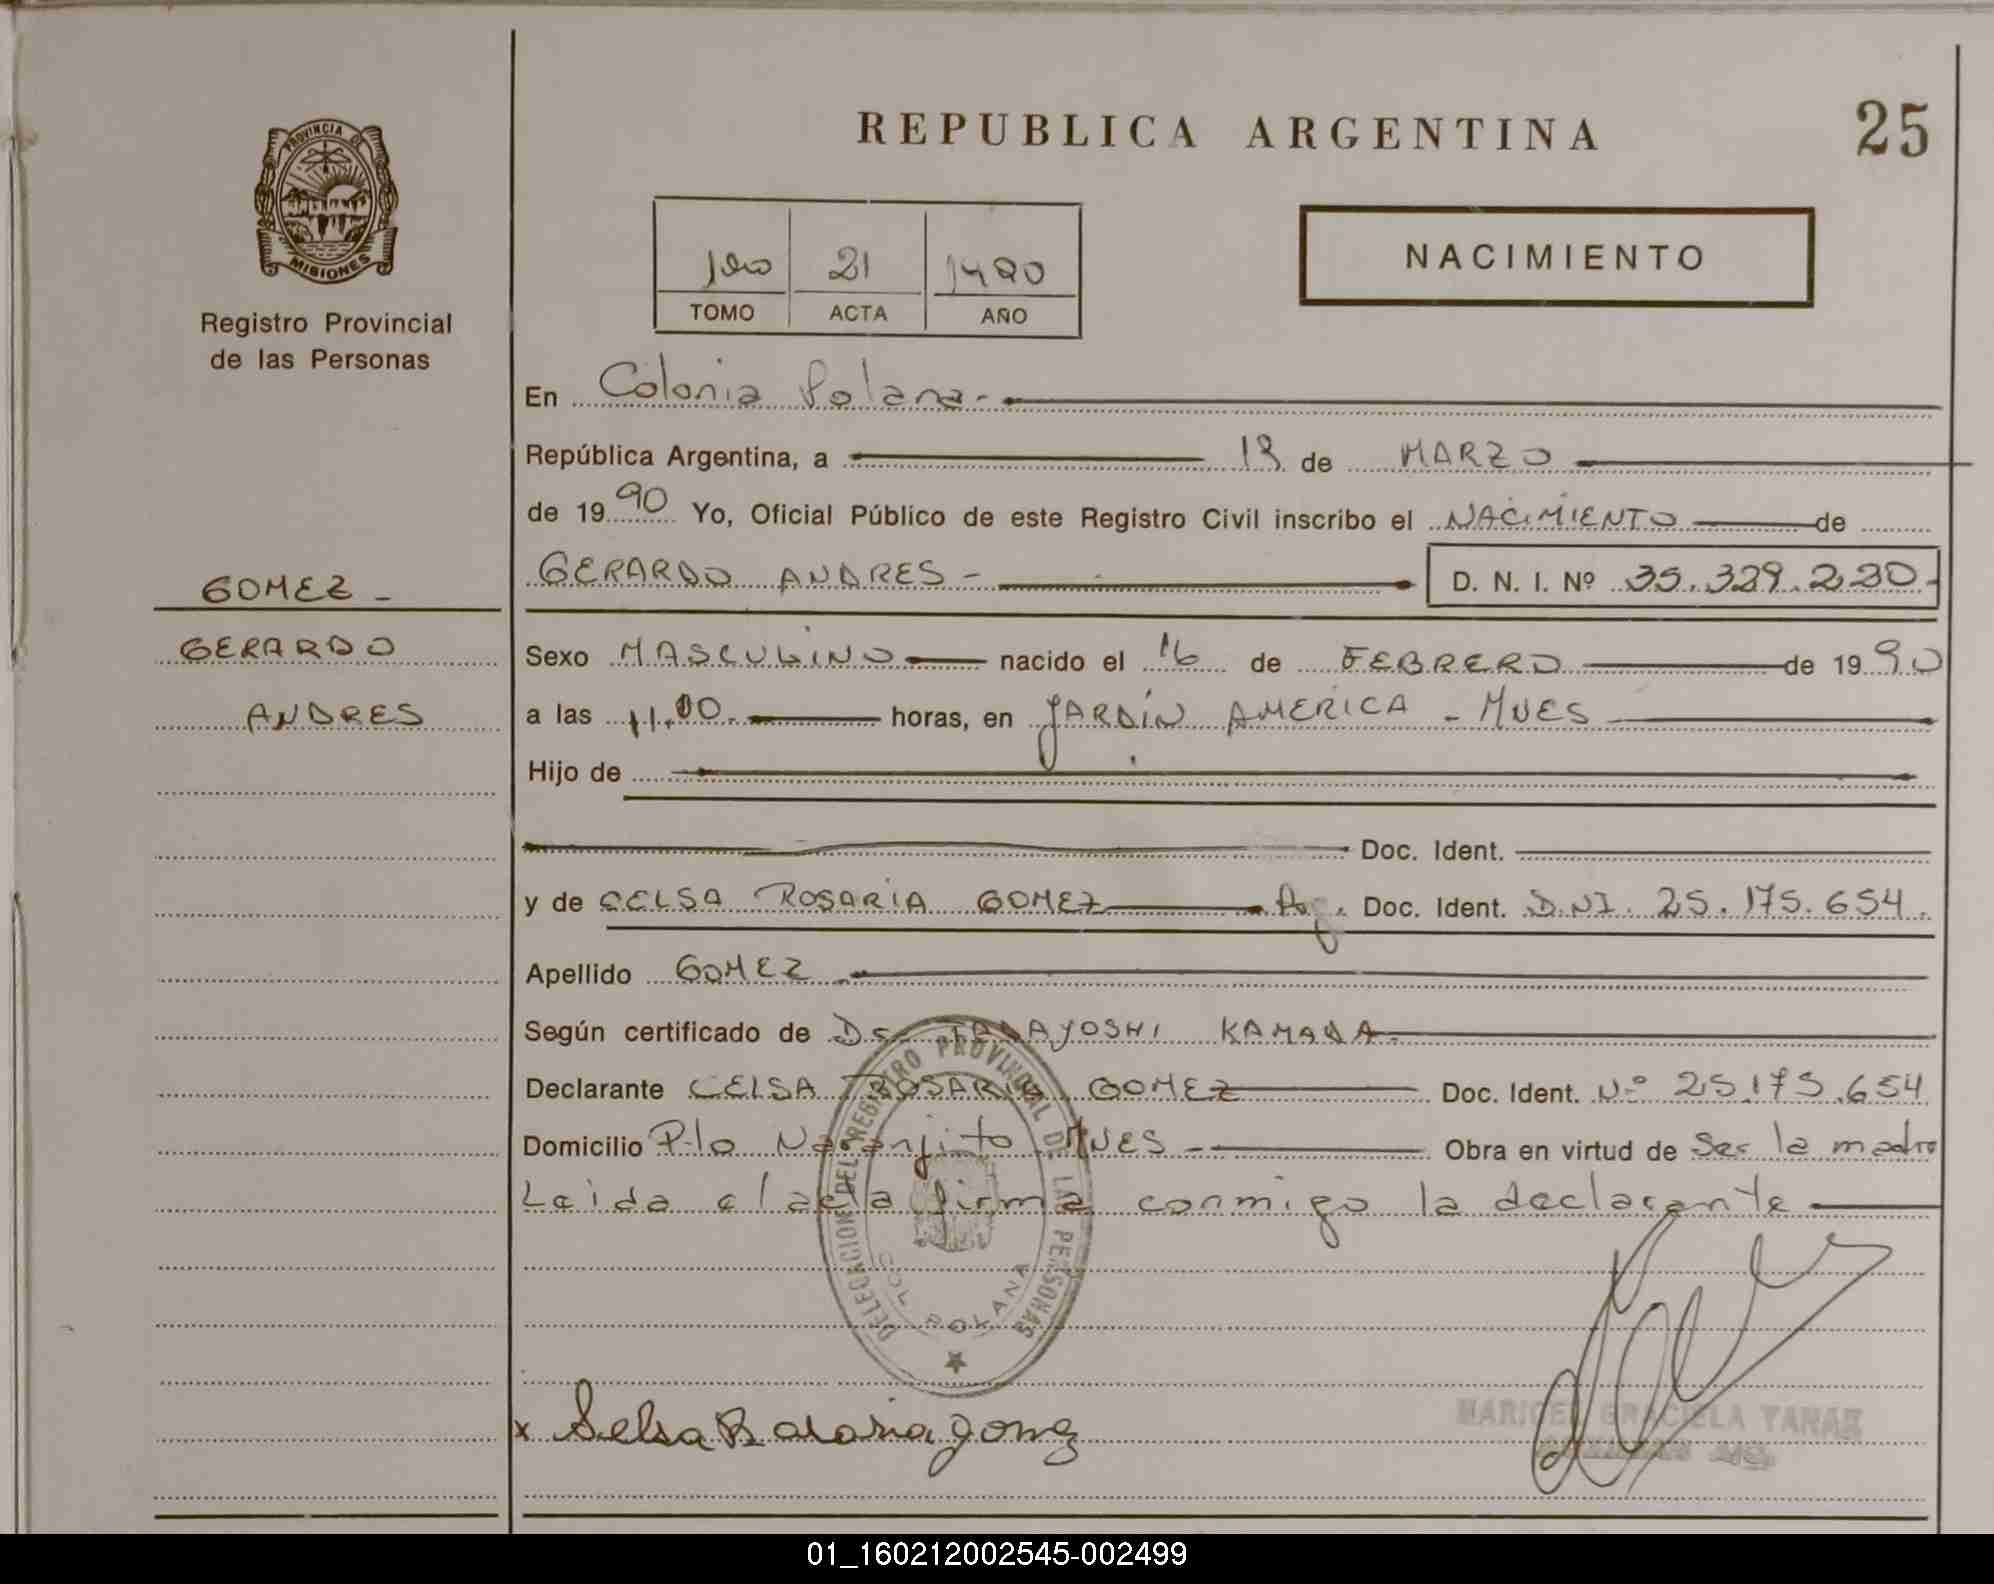 REPUBLICA ARGENTINA
25
PROVINCIA DE
MISIONES
Registro Provincial
de las Personas
1ero 21 1990
TOMO ACTA AÑO
NACIMIENTO
En Colonia Polana.-
República Argentina, a 13 de MARZO
de 1990 Yo, Oficial Público de este Registro Civil inscribo el NACIMIENTO de
GERARDO ANDRES - D. N. I. Nº 35.329.230.-
GOMEZ -
GERARDO
ANDRES
Sexo MASCULINO nacido el 16 de FEBRERO de 1990
a las 11.00. horas, en JARDIN AMERICA - MNES
Hijo de
Doc. Ident.
y de CELSA ROSARIA GOMEZ Arg. Doc. Ident. D.N.I. 25.175.654.
Apellido GOMEZ
Según certificado de Dr. TADAYOSHI KAMADA.
Declarante CELSA ROSARIA GOMEZ Doc. Ident. Nº 25.175.654
Domicilio P-lo Naranjito MNES - Obra en virtud de Ser la madre
Leida el acta firma conmigo la declarante
DELEGACION DEL REGISTRO PROVINCIAL DE LAS PERSONAS
COL POLANA
x Selsa Rosaria gomez
MARICEL GRACIELA
01_160212002545-002499